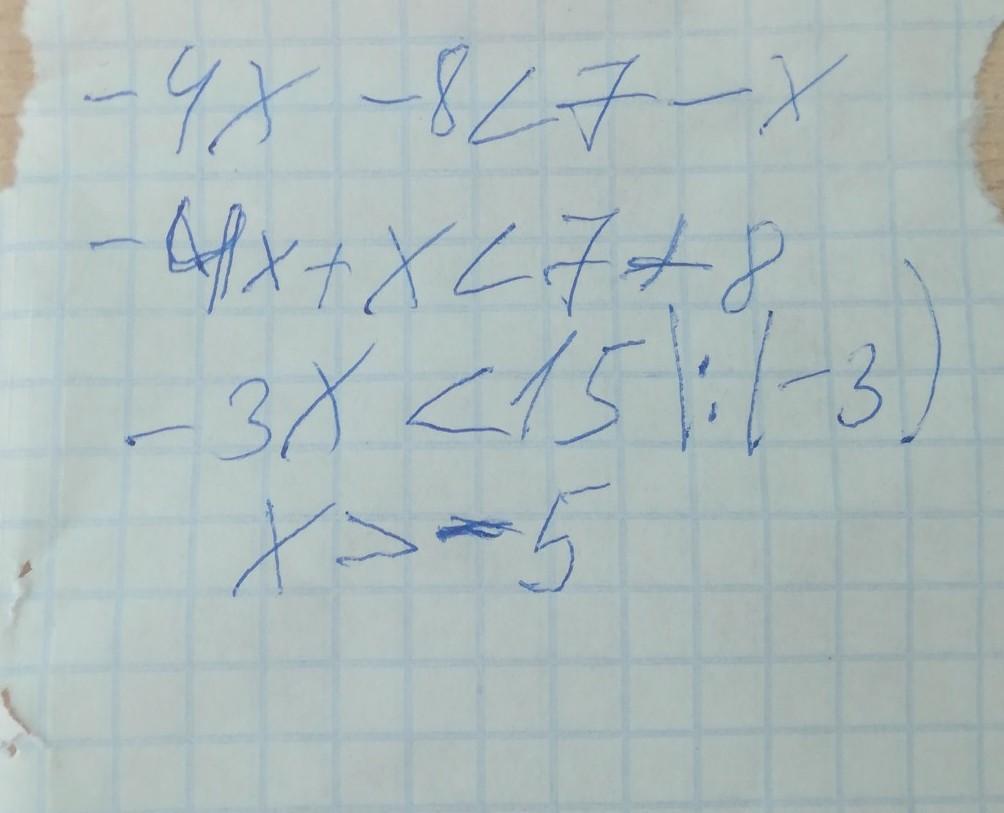 -4x -8<7-x
-4x+x<7+8
-3x<15|:(-3)
x>-5